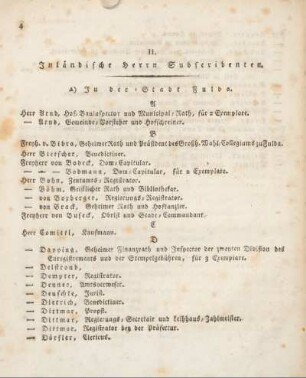 4
II.
Inländische Herrn Subscribenten.
A) In der Stadt Fulda.
A
Herr Arnd, Hof-Bauinspector und Municipal-Rath, für 2 Exemplare.
— Arnd, Gemeinde-Vorsteher und Hofschreiner.
B
Freyh. v. Bibra, Geheimer Rath und Präsident des Großh. Wahl-Collegiums zu Fulda.
Herr Breescher, Benedictiner.
Freyherr von Bodeck, Dom-Capitular.
— — Bodmann, Dom-Capitular, für 2 Exemplare.
Herr Bohn, Zentamts-Registrator.
— Böhm, Geistlicher Rath und Bibliothekar.
— von Boxberger, Regierungs-Registrator.
— von Brack, Geheimer Rath und Hofkanzler.
Freyherr von Buseck, Obrist und Stadt-Commandant.
C
Herr Comitti, Kaufmann.
D
— Davoine, Geheimer Finanzrath und Inspector der zweyten Division des
Enregistrements und der Stempelgebühren, für 3 Exemplare.
— Delstroud,
— Dempter, Registrator.
— Denner, Amtsverweser.
— Deuschle, Jurist.
— Dietrich, Benedictiner.
— Dittmar, Propst.
— Dittmar, Regierungs-Secretair und Leihhaus-Zahlmeister.
— Dittmar, Registrator bey der Präfectur.
— Dörfler, Clericus.